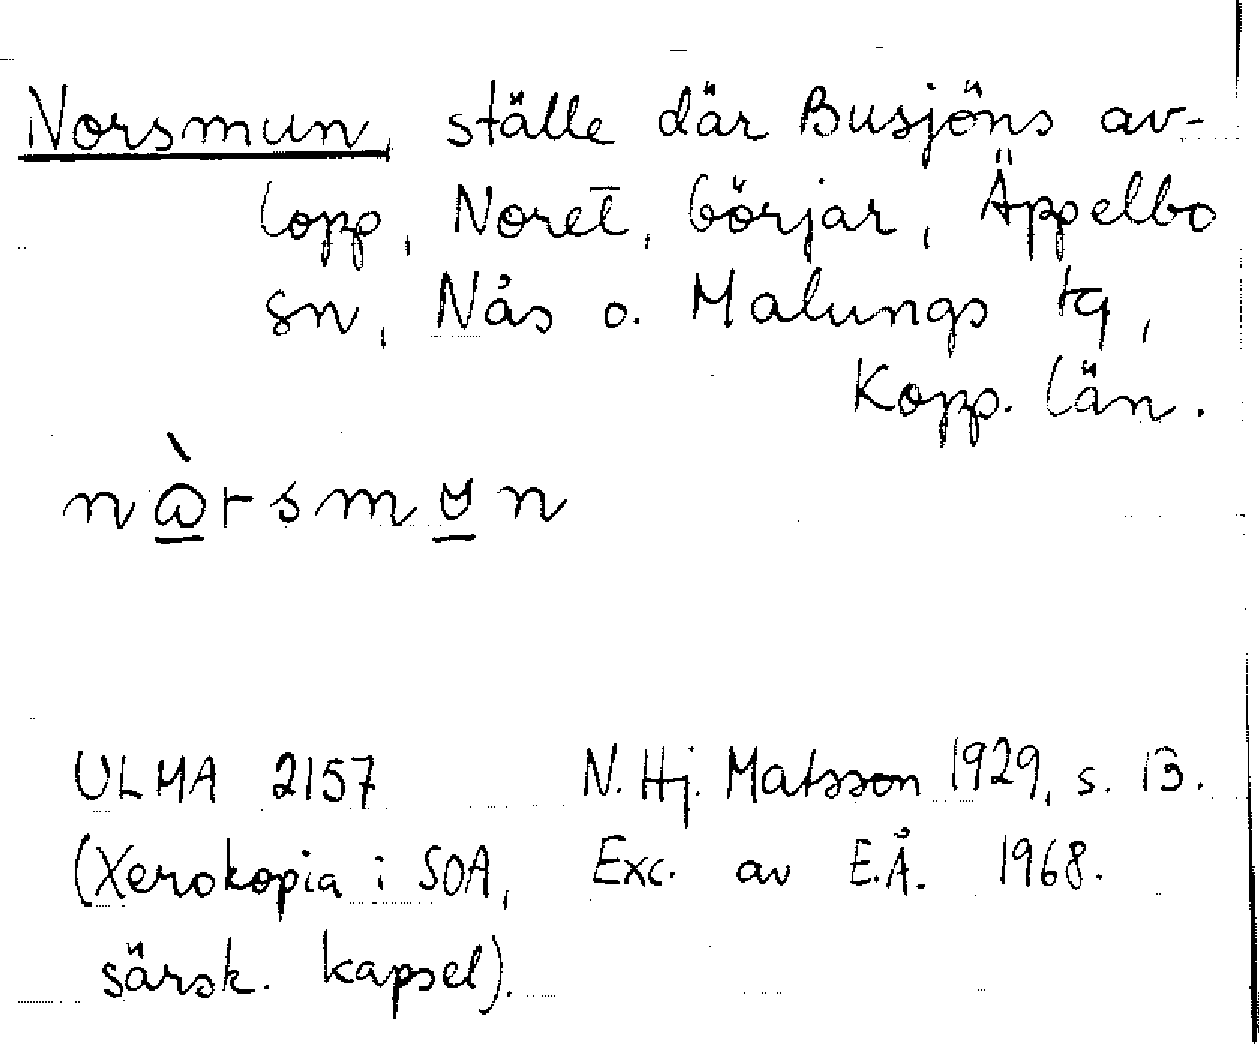 Norsmun, ställe där Busjöns av-
lopp, Noret, börjar, Äppelbo
sn, Nås o. Malungs tg,
Kopp. län.
ULMA 2157 N. Hj. Matsson 1929, s. 13.
(Xerokopia i SOA, Exc. av E.Å. 1968.
särsk. kapsel).